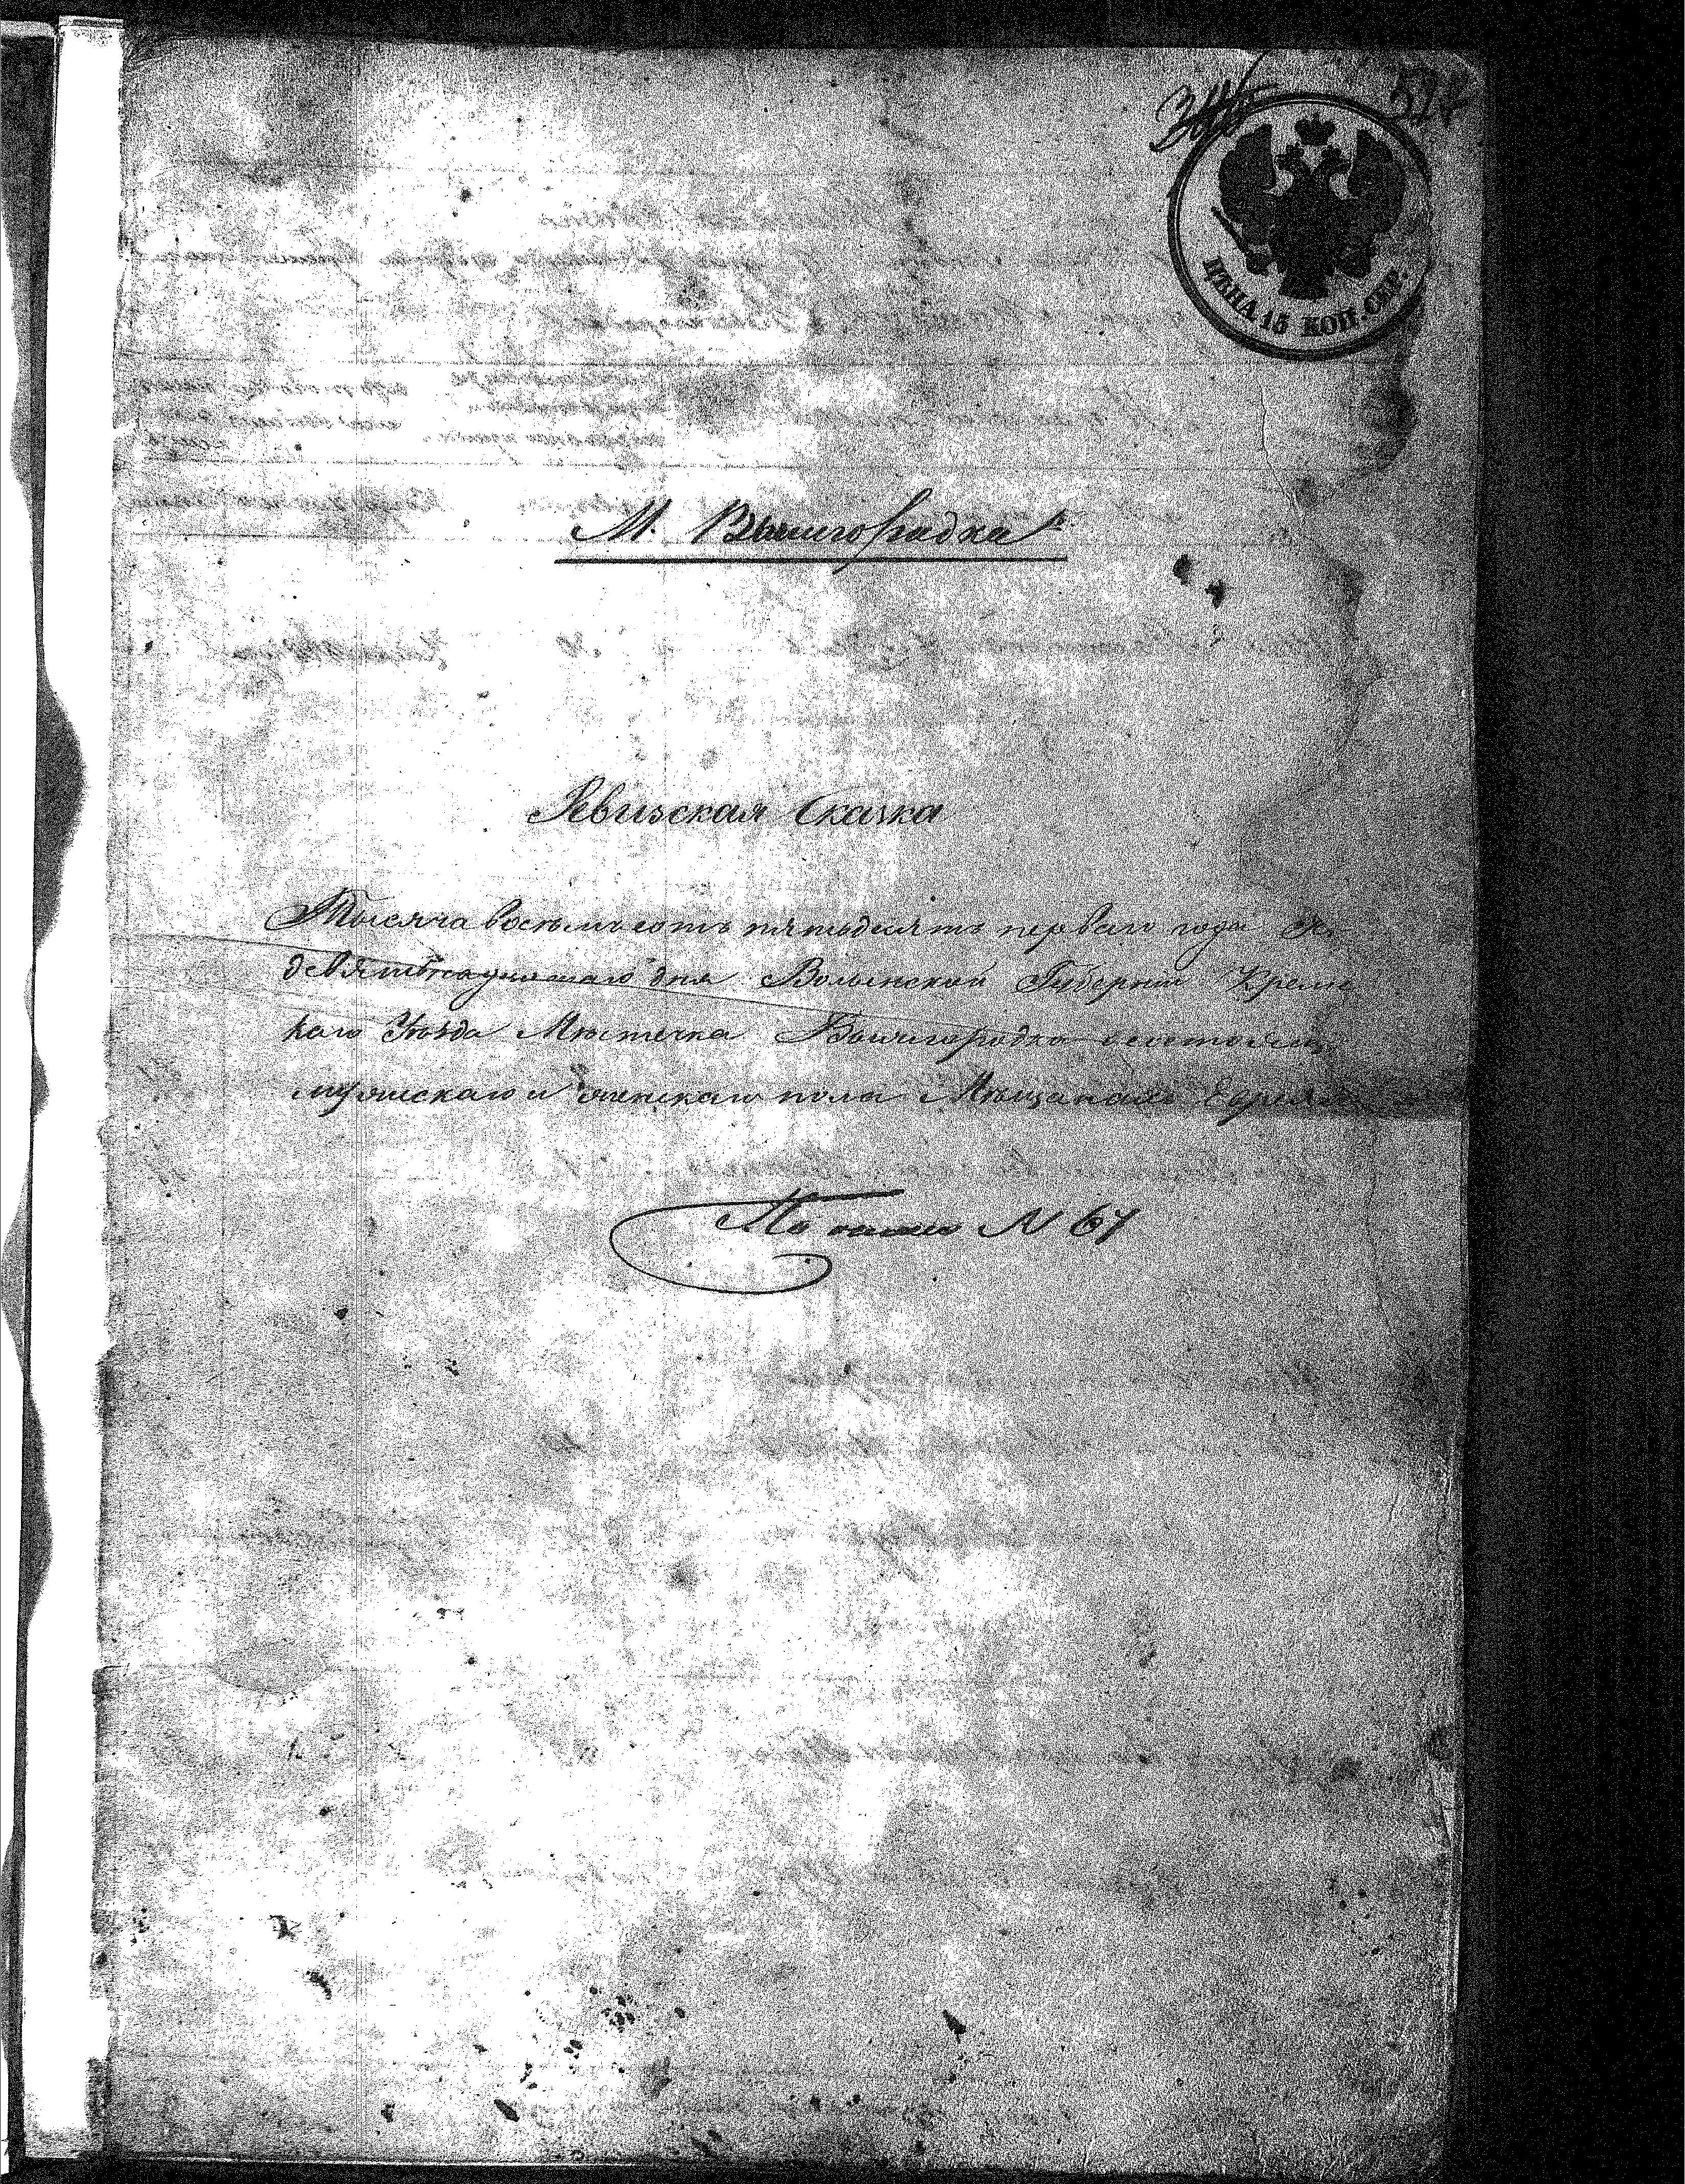 527
ЦѢНА 15 КОП. СЕР.
М. Вышгородка
Ревизская Сказка
Тысяча восемьсотъ пятьдесятъ перваго года
девятнадцатаго дня Волынской Губерніи Креме
каго Уѣзда Мѣстечка Вышгородка о состоящ
мужескаго и женскаго пола Мѣщанахъ Евреях
N 67